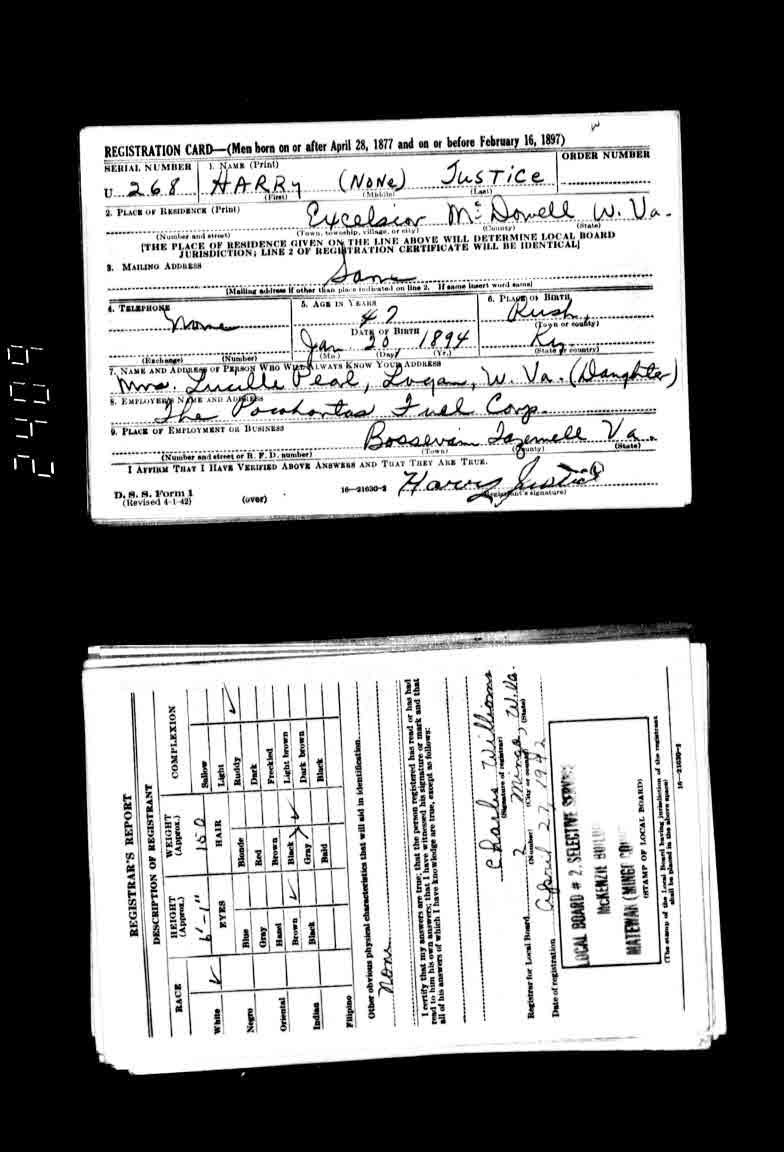 W
REGISTRATION CARD—(Men born on or after April 28, 1877 and on or before February 16, 1897)
SERIAL NUMBER 1. NAME (Print) ORDER NUMBER
U 268 HARRY (NONE) JUSTICE
(First) (Middle) (Last)
2. PLACE OF RESIDENCE (Print)
Excelsior McDowell W. Va.
(Number and street) (Town, township, village, or city) (County) (State)
[THE PLACE OF RESIDENCE GIVEN ON THE LINE ABOVE WILL DETERMINE LOCAL BOARD
JURISDICTION; LINE 2 OF REGISTRATION CERTIFICATE WILL BE IDENTICAL]
3. MAILING ADDRESS
Same
[Mailing address if other than place indicated on line 2. If same insert word same]
4. TELEPHONE 5. AGE IN YEARS 6. PLACE OF BIRTH
None 47 Rush,
DATE OF BIRTH (Town or county)
Jan 20, 1894 Ky.
(Exchange) (Number) (Mo.) (Day) (Yr.) (State or country)
7. NAME AND ADDRESS OF PERSON WHO WILL ALWAYS KNOW YOUR ADDRESS
Mrs. Lucille Peal, Logan, W. Va. (Daughter)
8. EMPLOYER'S NAME AND ADDRESS
The Pocahontas Fuel Corp.
9. PLACE OF EMPLOYMENT OR BUSINESS
Bossevain Tazewell Va.
(Number and street or R. F. D. number) (Town) (County) (State)
I AFFIRM THAT I HAVE VERIFIED ABOVE ANSWERS AND THAT THEY ARE TRUE.
D. S. S. Form 1
(Revised 4-1-42) (over) 16—21630-2 Harry Justice
(Registrant's signature)
2409
REGISTRAR'S REPORT
DESCRIPTION OF REGISTRANT
RACE HEIGHT (Approx.) WEIGHT (Approx.) COMPLEXION
White ✓ 6'-1" 150 Sallow
EYES HAIR Light
Negro Blue Blonde Ruddy ✓
Gray Red Dark
Oriental Hazel Brown Freckled
Brown ✓ Black Light brown
Indian Black Gray ✓ Dark brown
Bald Black
Filipino
Other obvious physical characteristics that will aid in identification
None
I certify that my answers are true; that the person registered has read or has had
read to him his own answers; that I have witnessed his signature or mark and that
all of his answers of which I have knowledge are true, except as follows:
Charles Williams
(Signature of registrar)
Registrar for Local Board 2 Mingo, W. Va.
(Number) (City or county) (State)
Date of registration April 27, 1942
LOCAL BOARD # 2, SELECTIVE SERVICE
MCKENZIE
MATEWAN (MINGO
(STAMP OF LOCAL BOARD)
(The stamp of the Local Board having jurisdiction of the registrant
shall be placed in the above space)
16—21630-2